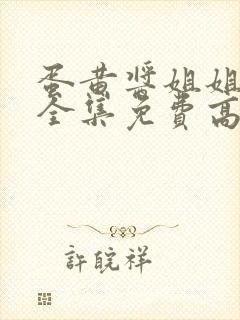 蛋黄酱姐姐
全集免费高
許皖祥